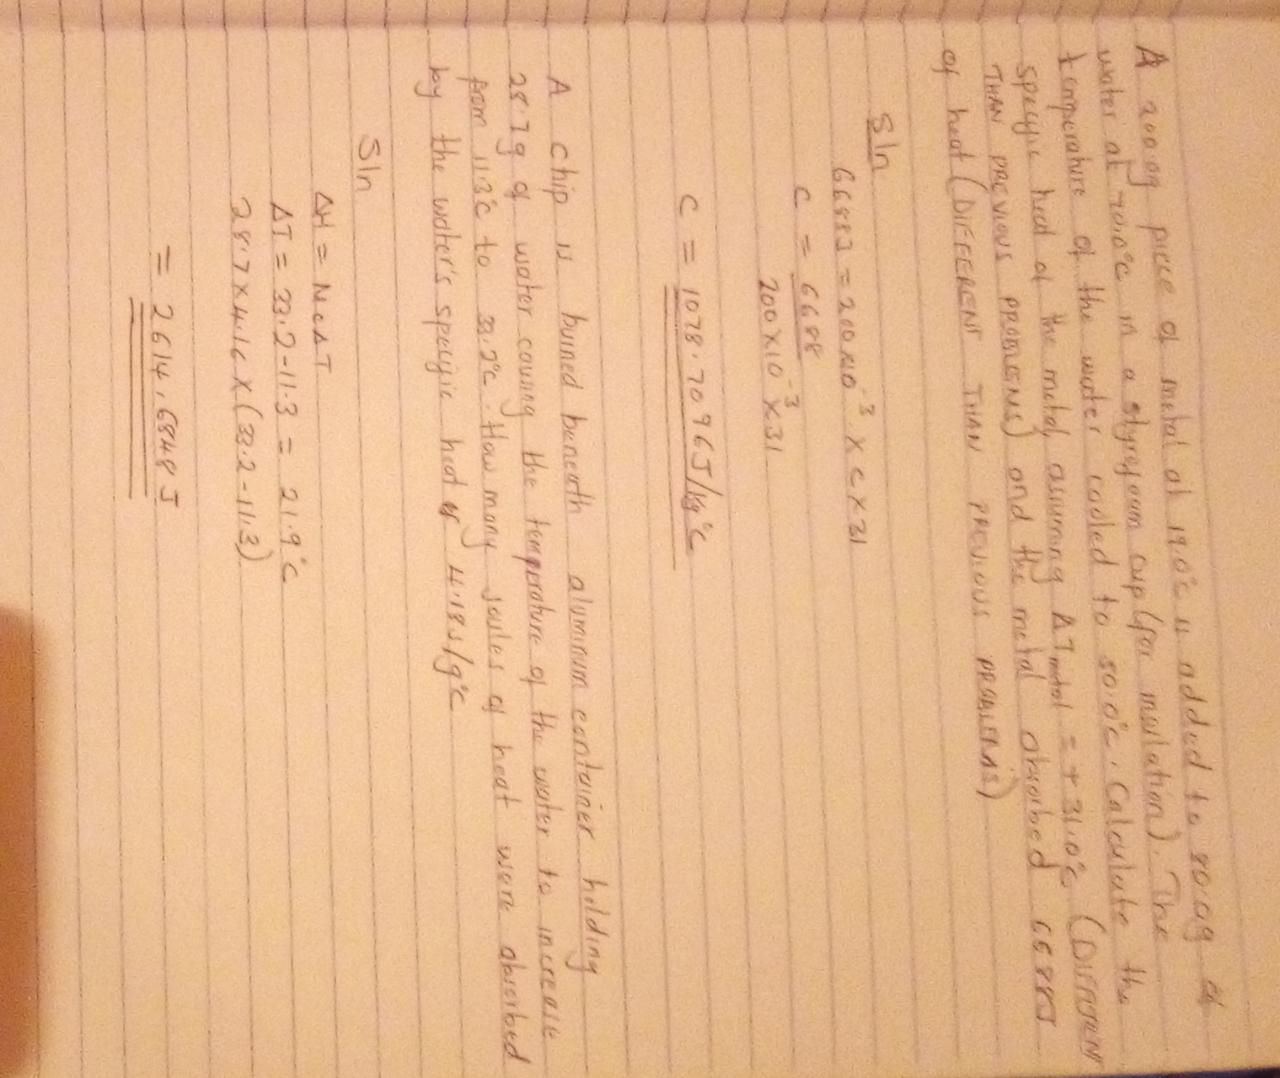 A 200.0g piece of metal at 19.0°C is added to 80.0g of
water at 70.0°C in a styrofoam cup (for insulation). The
temperature of the water cooled to 50.0°C. Calculate the
specific heat of the metal, assuming ΔTmetal = +31.0°C (DIFFERENT
THAN PREVIOUS PROBLEMS) and the metal absorbed 6688J
of heat (DIFFERENT THAN PREVIOUS PROBLEMS)
Sln
6688J = 200x10⁻³ x c x 31
c = 6688
200x10⁻³ x 31
c = 1078.7096J/kg°C
A chip is burned beneath aluminum container holding
28.7g of water causing the temperature of the water to increase
from 11.3°C to 33.2°C. How many joules of heat were absorbed
by the water's specific heat of 4.18J/g°C
Sln
ΔH = McΔT
ΔT = 33.2-11.3 = 21.9°C
28.7 x 4.16 x (33.2-11.3)
= 2614.6848J